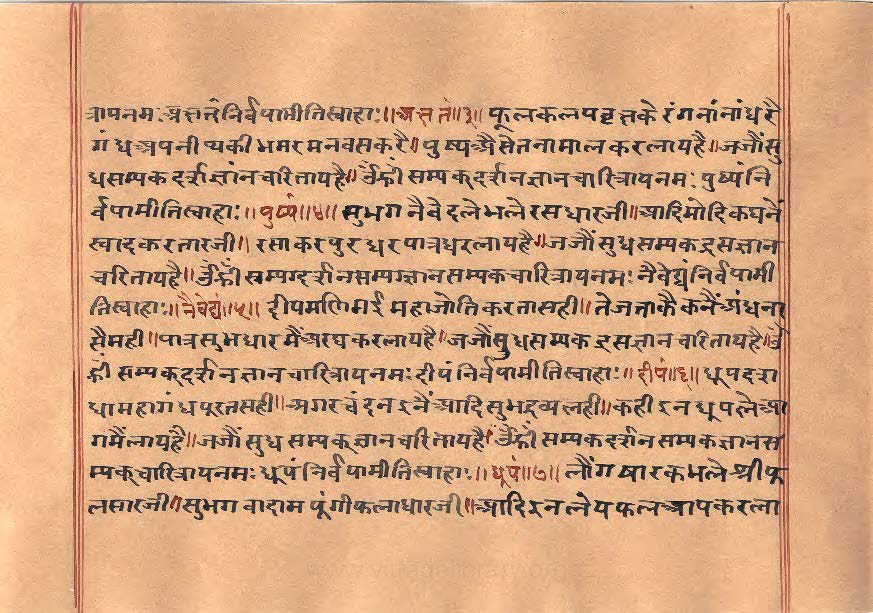 त्रायनमः अक्षतंनिर्वपामीतिस्वाहाः ॥अक्षतं॥३॥ फूलकलपवृक्षके रंगनांनांधरै
गंधअपनीप्यकी भमरमनवसकरै॥ पुष्पअैसेतनामालकरलायहै॥जजौंसु
धसम्यकदर्शज्ञांनचरितायहै॥ॐह्रीं सम्यक्दर्शनज्ञानचारित्रायनमः पुष्पंनि
र्वपामीतिस्वाहाः॥पुष्पं॥४॥ सुभगनैवेदलेभलेरसधारजी॥आदिमोदिकघनें
स्वादकरतारजी॥ रसाकरपुरधरपात्रधरलायहै॥जजौंसुधसम्यकद्रसज्ञान
चरितायहै॥ॐह्रीं सम्यग्दर्शनसम्यग्ज्ञानसम्यकचारित्रायनमः नैवेद्यंनिर्वपामी
तिस्वाहाः॥नैवेद्यं॥५॥ दीपमणिमई महाजोतिकरतासही॥ तेजजाकैकनैंअंधना
सैमही॥पात्रसुभधारमैंअरघकरलायहै॥जजौंसुधसम्यकद्रसज्ञानचारितायहै॥ॐ
ह्रीं सम्यक्दर्शनज्ञानचारित्रायनमः दीपंनिर्वपामीतिस्वाहाः॥दीपं॥६॥ धूपदशा
धामहागंधपूरतसही॥अगरचंदनइनैंआदिसुभद्रव्यलही॥कहीइनधूपलेआ
गमैंलायहै॥जजौंसुधसम्यक्ज्ञानचरितायहै॥ॐह्रीं सम्यकदर्शनसम्यकज्ञानस
म्यक्चारित्रायनमः धूपंनिर्वपामीतिस्वाहाः॥धूपं॥७॥ लौंगषारकभलेश्रीफ
लसारजी॥सुभगवादामपूंगीफलाधारजी॥आदिइनलेयफलआपकरला